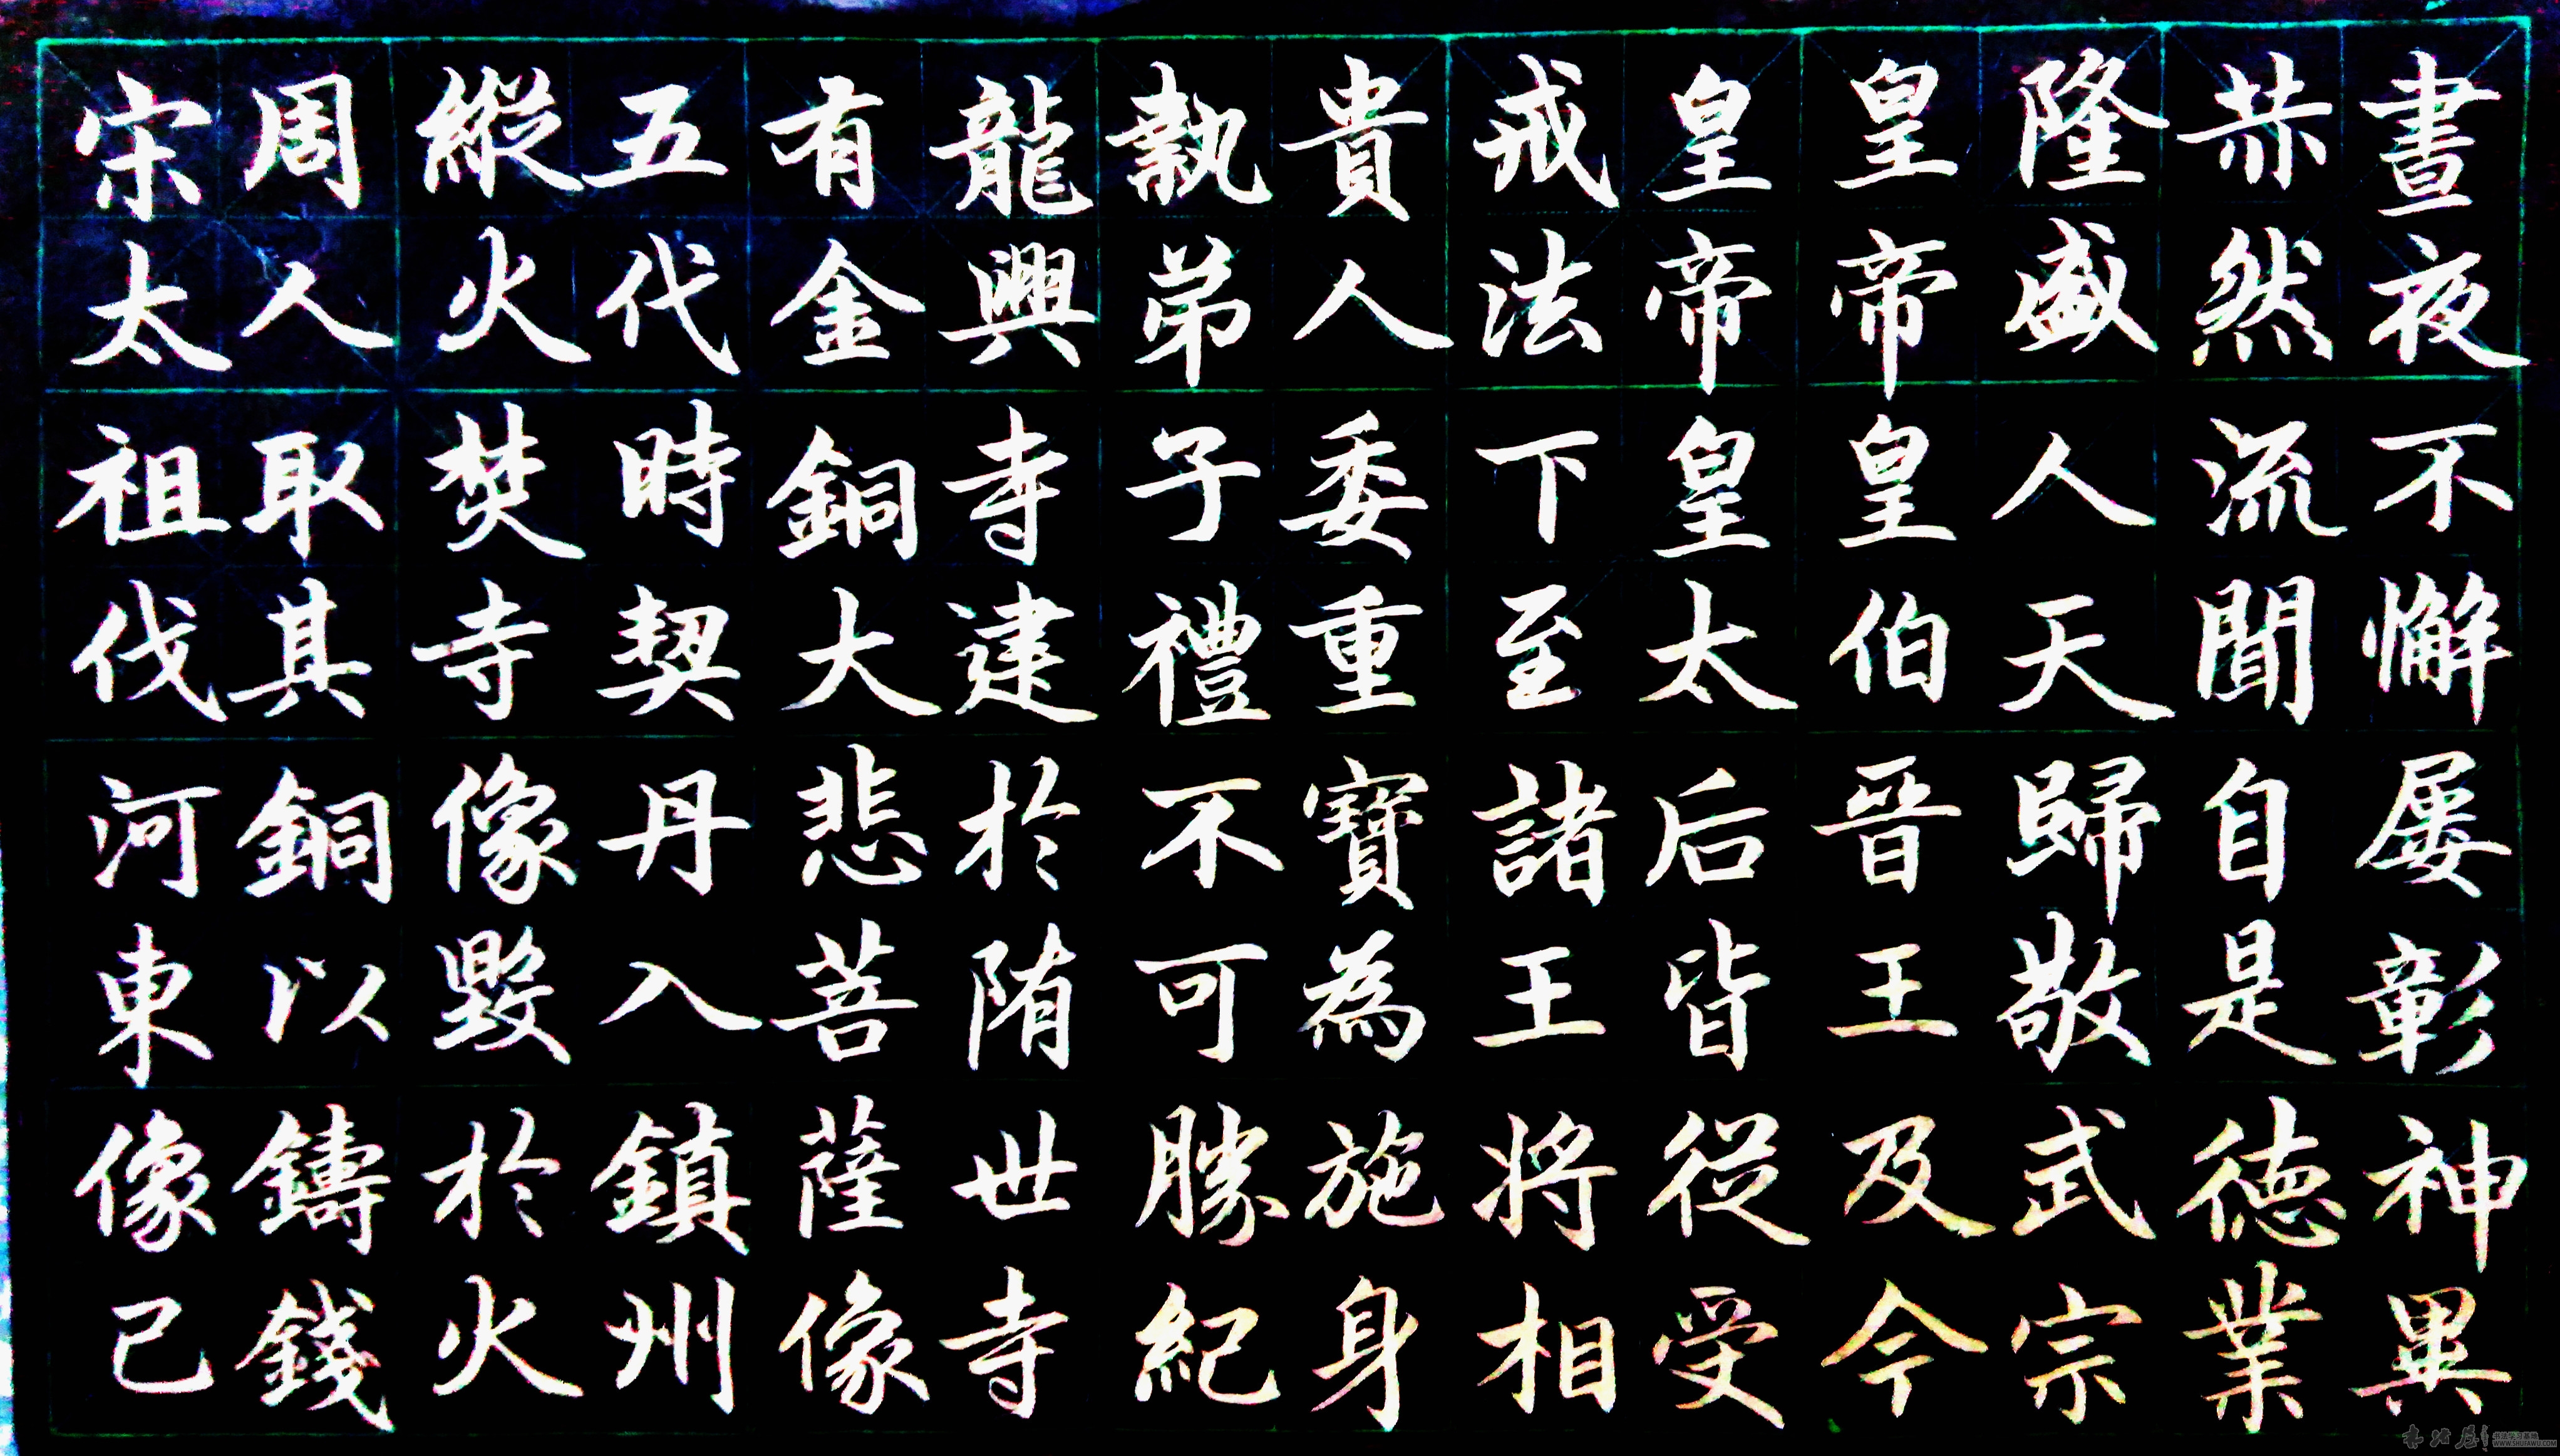 晝夜不懈屡彰神異
赫然流聞自是徳業
隆盛人天歸敬武宗
皇帝皇伯晋王及今
皇帝皇太后皆從受
戒法下至諸王將相
貴人委重寶為施身
執弟子禮不可勝紀
龍興寺建於隋世寺
有金銅大悲菩薩像
五代時契丹入鎮州
縱火焚寺像毀於火
周人取其銅以鑄錢
宋太祖伐河東像已